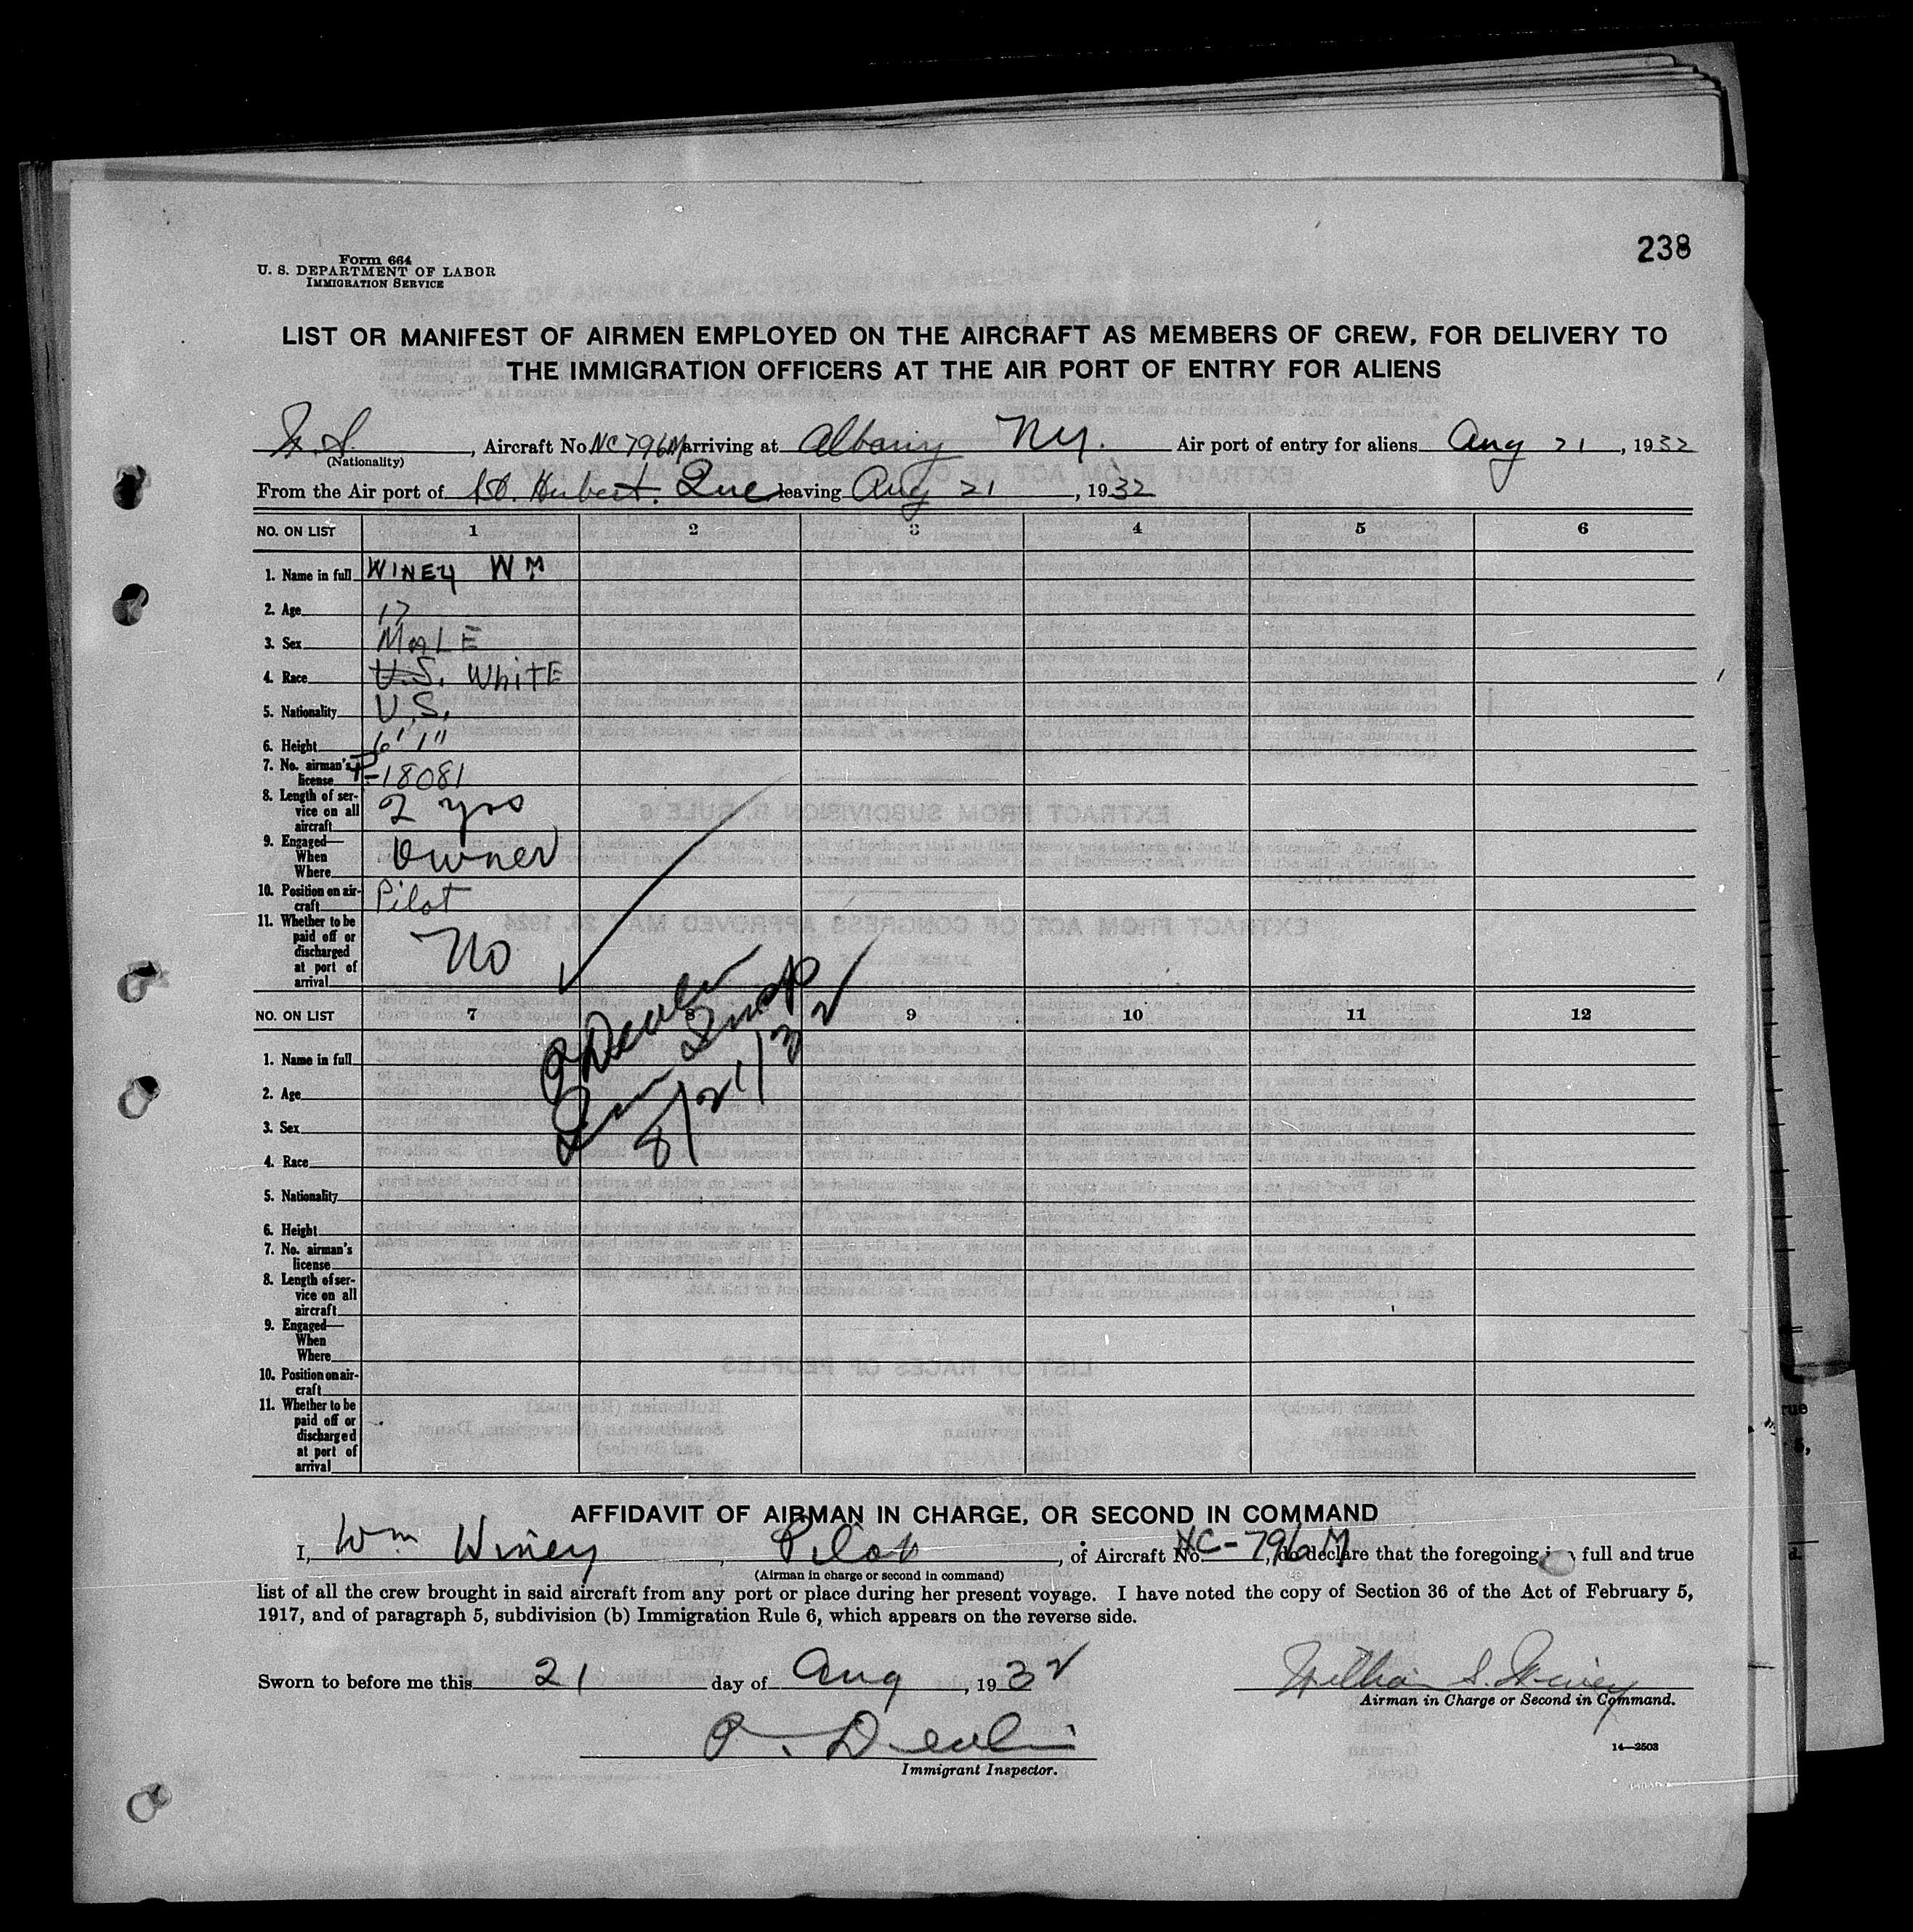 238
Form 664
U. S. DEPARTMENT OF LABOR
IMMIGRATION SERVICE
LIST OR MANIFEST OF AIRMEN EMPLOYED ON THE AIRCRAFT AS MEMBERS OF CREW, FOR DELIVERY TO
THE IMMIGRATION OFFICERS AT THE AIR PORT OF ENTRY FOR ALIENS
U.S., Aircraft No. NC796M arriving at Albany NY. Air port of entry for aliens Aug 21, 1932
(Nationality)
From the Air port of St. Hubert. Que leaving Aug 21, 1932
NO. ON LIST 1 2 3 4 5 6
1. Name in full WINEY WM
2. Age 17
3. Sex MALE
4. Race U.S. WHITE
5. Nationality U.S.
6. Height 6' 1"
7. No. airman's license P-18081
8. Length of service on all aircraft 2 yrs
9. Engaged— When Where Owner
10. Position on aircraft Pilot
11. Whether to be paid off or discharged at port of arrival No
NO. ON LIST 7 8 9 10 11 12
P Devlin
Imm Insp
8/21/32
1. Name in full
2. Age
3. Sex
4. Race
5. Nationality
6. Height
7. No. airman's license
8. Length of service on all aircraft
9. Engaged— When Where
10. Position on aircraft
11. Whether to be paid off or discharged at port of arrival
AFFIDAVIT OF AIRMAN IN CHARGE, OR SECOND IN COMMAND
I, Wm Winey, Pilot, of Aircraft No. NC-796M, do declare that the foregoing is a full and true
(Airman in charge or second in command)
list of all the crew brought in said aircraft from any port or place during her present voyage. I have noted the copy of Section 36 of the Act of February 5,
1917, and of paragraph 5, subdivision (b) Immigration Rule 6, which appears on the reverse side.
Sworn to before me this 21 day of Aug, 1932
William S. Winey
Airman in Charge or Second in Command.
P. Devlin
Immigrant Inspector.
14—2503